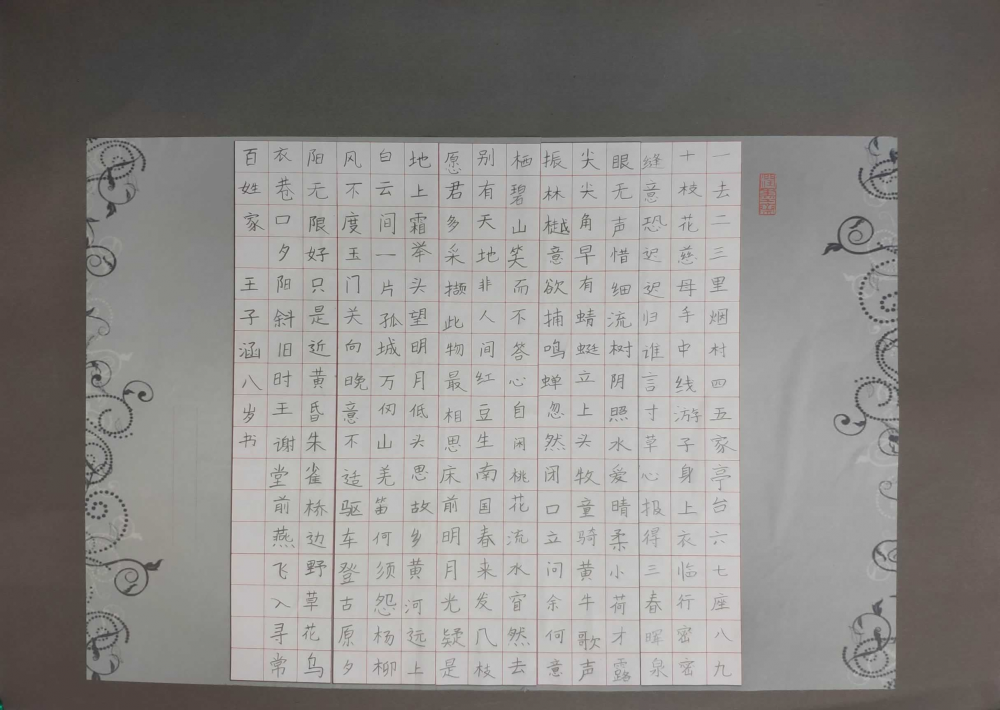 一去二三里烟村四五家亭台六七座八九
十枝花慈母手中线游子身上衣临行密密
缝意恐迟迟归谁言寸草心报得三春晖泉
眼无声惜细流树阴照水爱晴柔小荷才露
尖尖角早有蜻蜓立上头牧童骑黄牛歌声
振林樾意欲捕鸣蝉忽然闭口立问余何意
栖碧山笑而不答心自闲桃花流水窅然去
别有天地非人间红豆生南国春来发几枝
愿君多采撷此物最相思床前明月光疑是
地上霜举头望明月低头思故乡黄河远上
白云间一片孤城万仞山羌笛何须怨杨柳
风不度玉门关向晚意不适驱车登古原夕
阳无限好只是近黄昏朱雀桥边野草花乌
衣巷口夕阳斜旧时王谢堂前燕飞入寻常
百姓家 王子涵八岁书